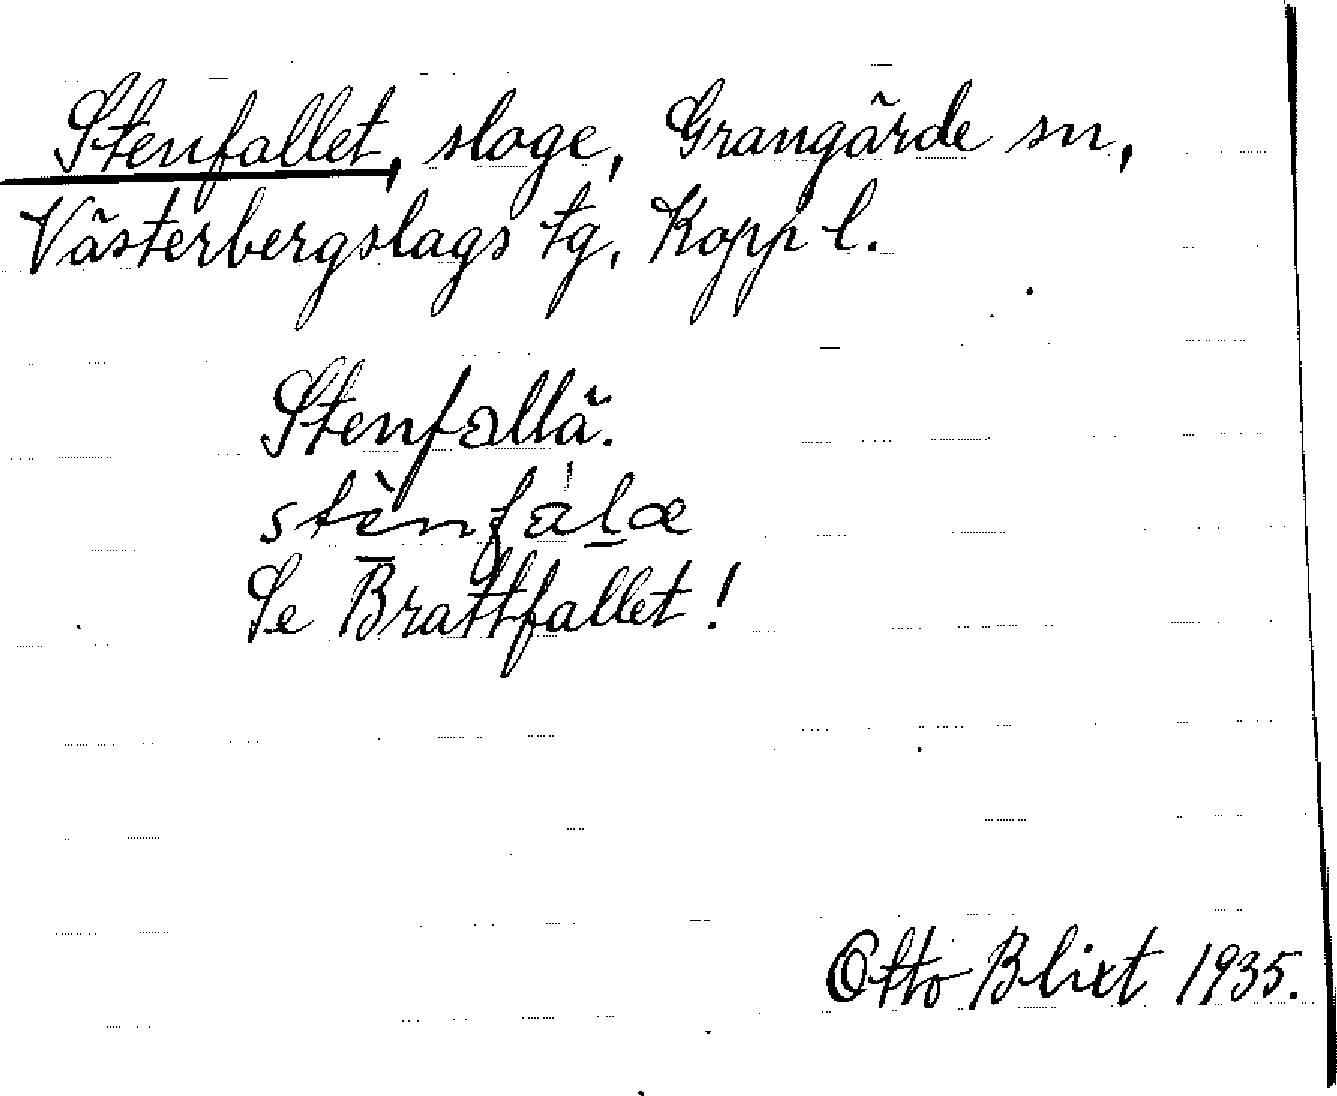 Stenfallet, sloge, Grangärde sn,
Västerbergslags tg, Kopp l.
Stenfallä.
stènfalæ
Se Brattfallet!
Otto Blixt 1935.